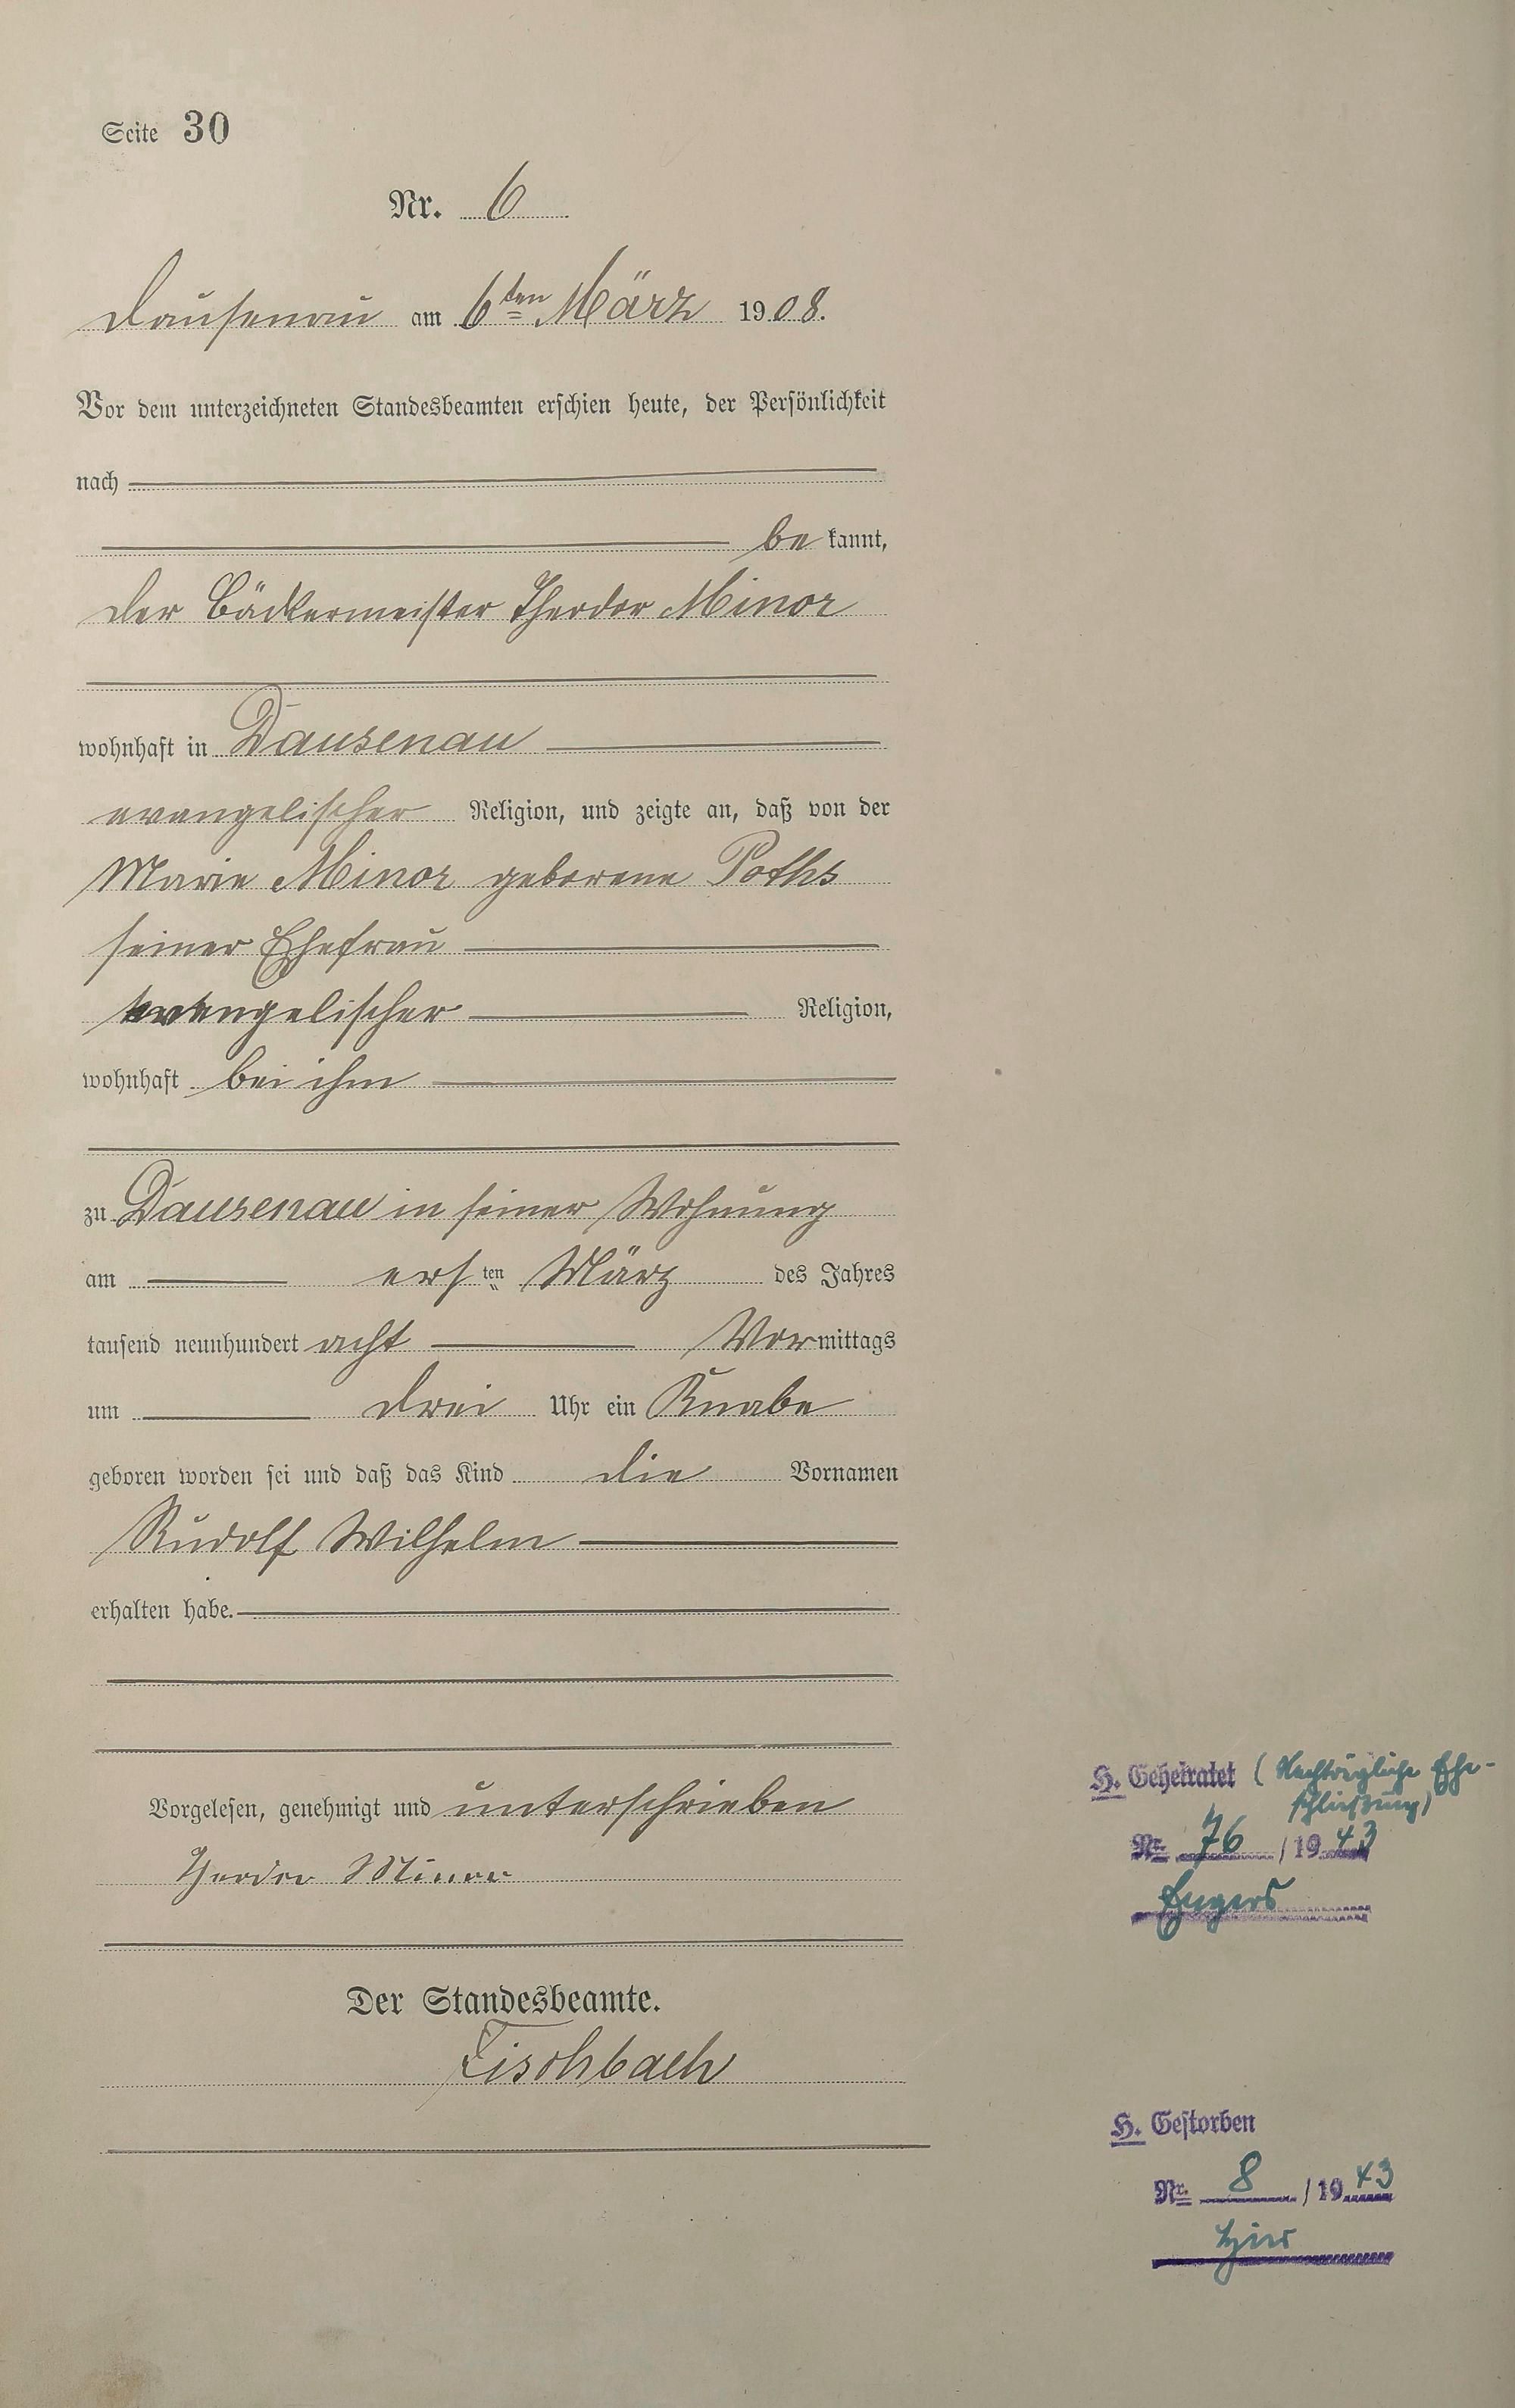 Seite 30
Nr. 6
Dausenau am 6ten März 1908.
Vor dem unterzeichneten Standesbeamten erschien heute, der Persönlichkeit
nach
be kannt,
der Bäckermeister Theodor Minor
wohnhaft in Dausenau
evangelischer Religion, und zeigte an, daß von der
Marie Minor geborene Poths
seiner Ehefrau
evangelischer Religion,
wohnhaft bei ihm
zu Dausenau in seiner Wohnung
am ersten März des Jahres
tausend neunhundert acht Vormittags
um drei Uhr ein Knabe
geboren worden sei und daß das Kind die Vornamen
Rudolf Wilhelm
erhalten habe.
Vorgelesen, genehmigt und unterschrieben
Theodor Minor
Der Standesbeamte.
Fischbach
H. Geheiratet (Nachträgliche Ehe-
schließung)
Nr. 76 / 1943
Engers
H. Gestorben
Nr. 8 / 1943
hier